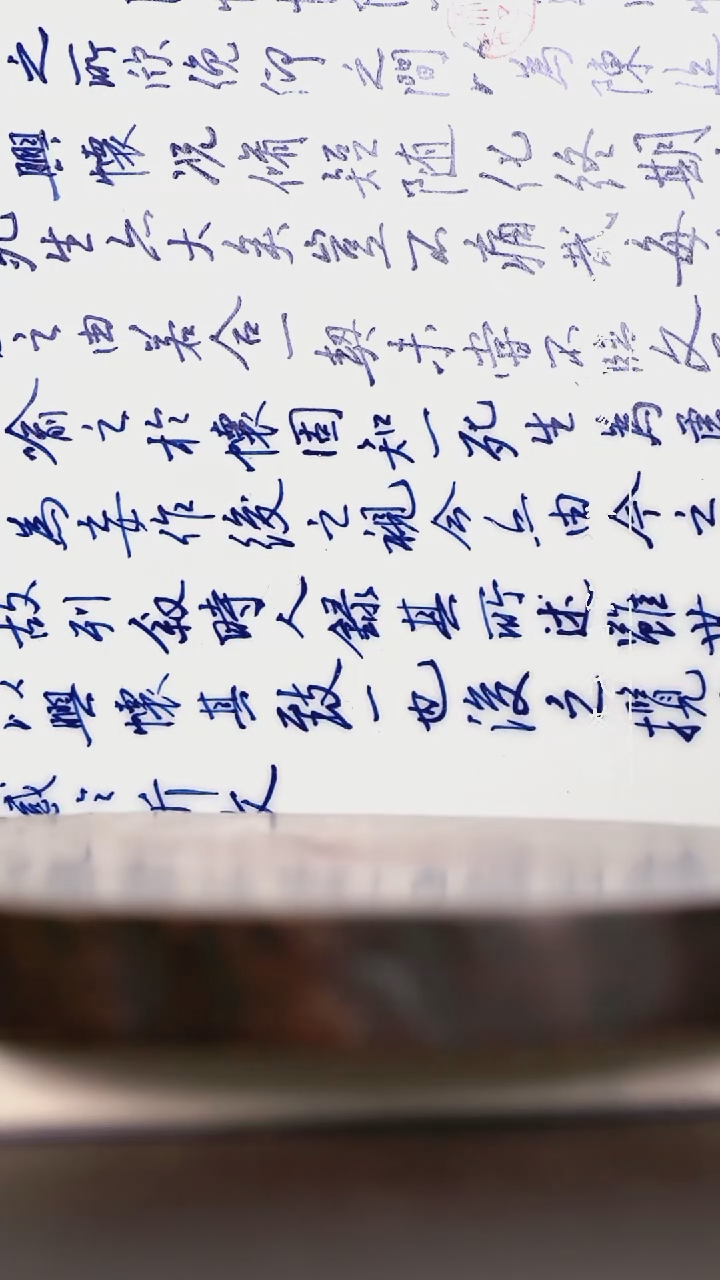 之所欣俛仰之間以為陳迹
興懷況脩短隨化終期
死生亦大矣豈不痛哉每
之由若合一契未嘗不臨文
喻之於懷固知一死生為虛
為妄作後之視今亦由今之
故列敘時人錄其所述雖世
以興懷其致一也後之攬
感於斯文